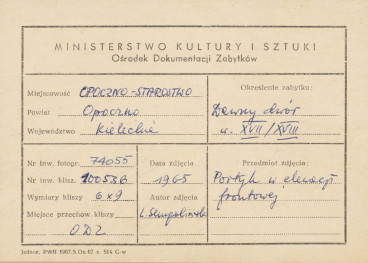 MINISTERSTWO KULTURY I SZTUKI
Ośrodek Dokumentacji Zabytków
Miejscowość OPOCZNO-STAROSTWO
Powiat Opoczno
Województwo Kieleckie
Określenie zabytku:
Dawny dwór
w. XVII/XVIII
Nr inw. fotogr. 74055
Nr inw. klisz. 100536
Wymiary kliszy 6x9
Miejsce przechow. kliszy
ODZ
Data zdjęcia
1965
Autor zdjęcia
Przedmiot zdjęcia:
Portyk w elewacji
frontowej